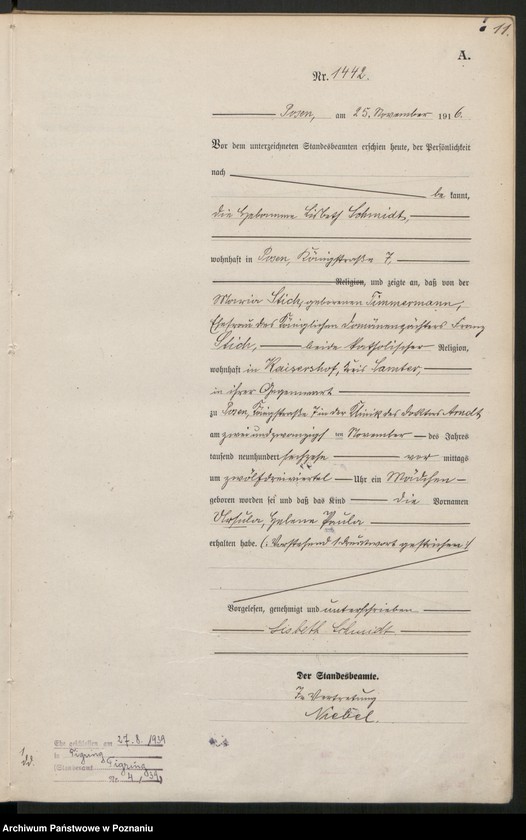 11.
A.
Nr. 1442.
Posen, am 25. November 1916.
Vor dem unterzeichneten Standesbeamten erschien heute, der Persönlichkeit
nach
be kannt,
die Hebamme Lisbeth Schmidt,
wohnhaft in Posen, Königstraße 7,
Religion, und zeigte an, daß von der
Maria Stich, geborenen Timmermann,
Ehefrau des Königlichen Domänenpächters Franz
Stich, beide katholischer Religion,
wohnhaft in Kaisershof, Kreis Samter,
in ihrer Gegenwart
zu Posen, Königstraße 7 in der Klinik des Doktors Arndt
am zweiundzwanzigsten November des Jahres
tausend neunhundert sechzehn vor mittags
um zwölfdreiviertel Uhr ein Mädchen
geboren worden sei und daß das Kind die Vornamen
Ursula, Helene Paula
erhalten habe. (: Vorstehend 1 Druckwort gestrichen :)
Vorgelesen, genehmigt und unterschrieben
Lisbeth Schmidt
Der Standesbeamte.
In Vertretung
Niebel.
Ehe geschlossen am 27.8.1939
in
Standesamt
Nr. 4/1939
Archiwum Państwowe w Poznaniu